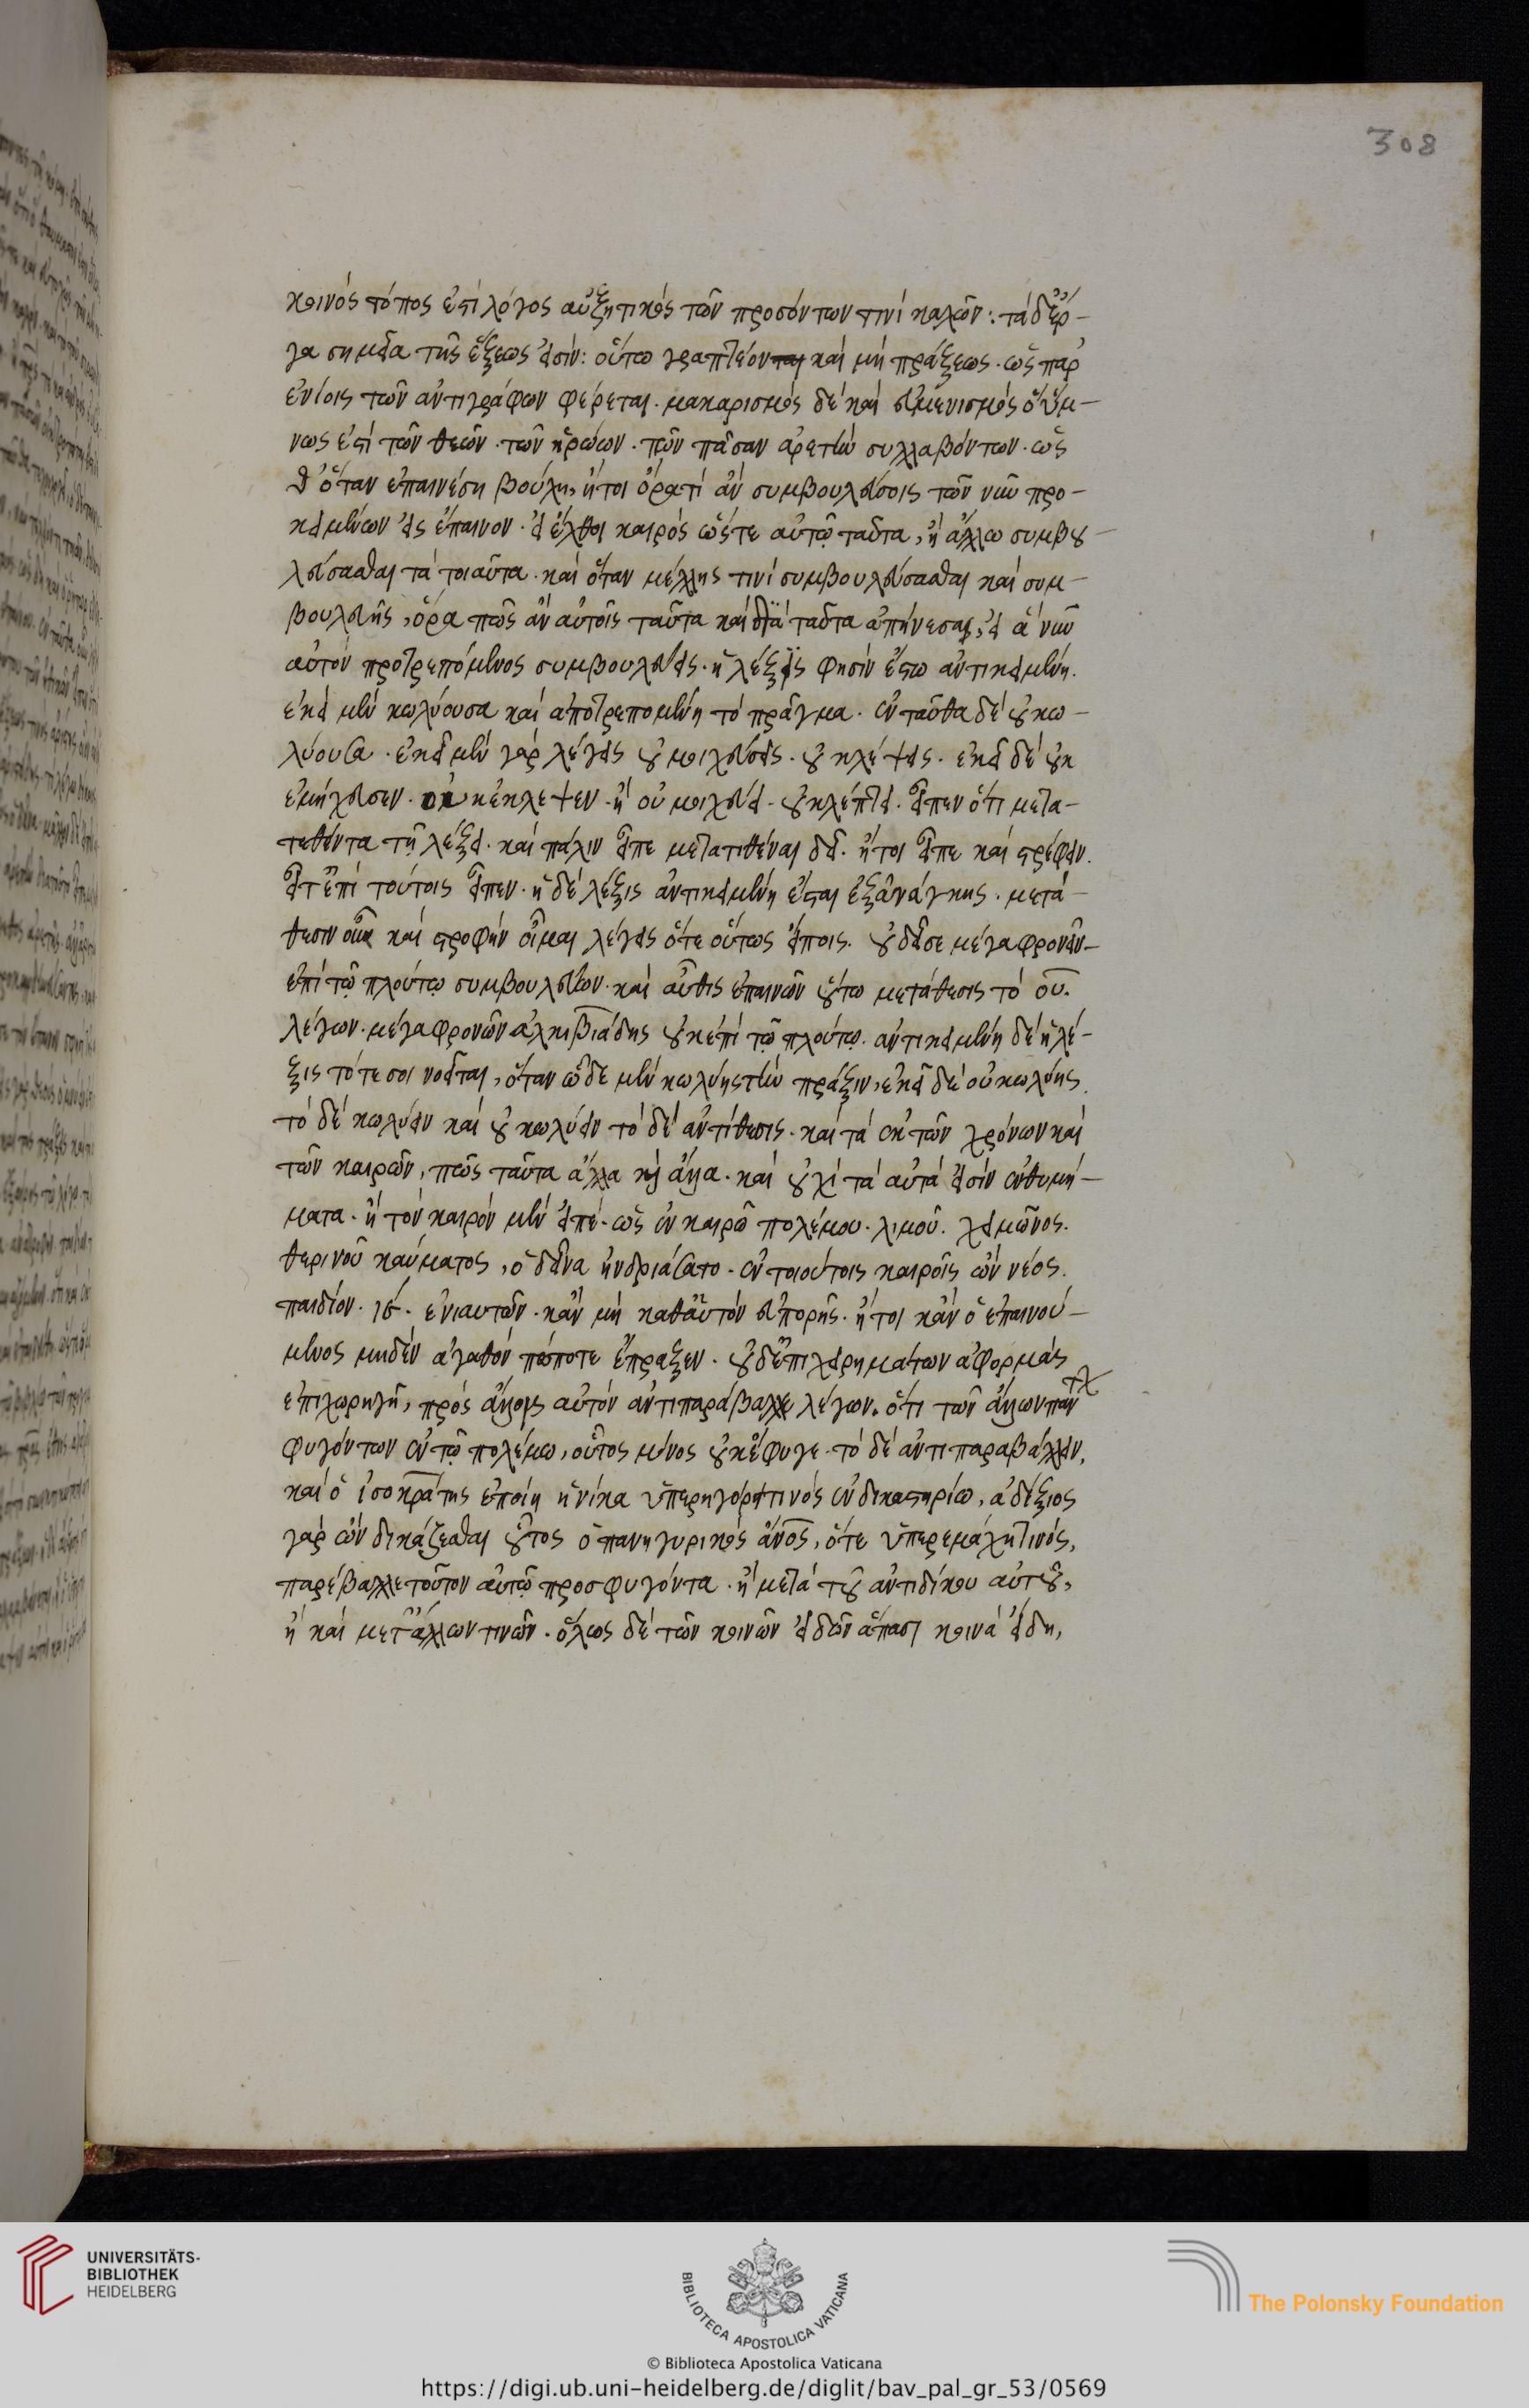 308
κοινός τόπος ἐστὶ λόγος αὐξητικὸς τῶν προσόντων τινὶ καλῶν: τὰ δ' ἔρ-
γα σημεῖα τῆς ἕξεως εἰσίν: οὕτω γραπτέον καὶ μὴ πράξεως. ὡς παρ'
ἐνίοις τῶν ἀντιγράφων φέρεται. μακαρισμὸς δὲ καὶ ὁ ὕμ-
νως ἐστὶ τῶν θεῶν. τῶν ἡρώων. τῶν πᾶσαν ἀρετὴν συλλαβόντων. ὡς
δ' ὅταν ἐπαινέσῃ βούλῃ, ἤτοι ὅρα τί ἂν συμβουλεύσοις τῶν νῦν προ-
κειμένων εἰς ἔπαινον. εἰ ἔλθοι καιρὸς ὥστε αὐτῷ ταῦτα, ἢ ἄλλω συμβου-
λεύσασθαι τὰ τοιαῦτα. καὶ ὅταν μέλλῃς τινὶ συμβουλεύσασθαι καὶ συμ-
βουλεύῃς, ὅρα πῶς ἂν αὐτοῖς ταῦτα καὶ διὰ ταῦτα ἐπῄνεσας, εἰ ἃ νῦν
αὐτὸν προτρεπόμενος συμβουλεύεις. ἡ λέξις φησὶν ἔστω ἀντικειμένη.
ἐκεῖ μὲν κωλύουσα καὶ ἀποτρεπομένη τὸ πρᾶγμα. ἐνταῦθα δὲ οὐ κω-
λύουσα. ἐκεῖ μὲν γὰρ λέγεις οὐ μοιχεύσεις. οὐ κλέψεις. ἐκεῖ δὲ οὐκ
ἐμοίχευσεν. οὐκ ἔκλεψεν. ἢ οὐ μοιχεύει. οὐ κλέπτει. εἶπεν ὅτι μετα-
τεθέντα τῇ λέξει. καὶ πάλιν εἶπε μετατιθέναι δεῖ. ἤτοι εἶπε καὶ στρέφειν.
εἶτ' ἐπὶ τούτοις εἶπεν. ἡ δὲ λέξις ἀντικειμένη ἔσται ἐξ ἀνάγκης. μετά-
θεσιν οὖν καὶ στροφὴν οἶμαι λέγεις ὅτε οὕτως εἴποις. οὐ δεῖ σε μέγα φρονεῖν
ἐπὶ τῷ πλούτῳ συμβουλεύων. καὶ αὖθις ἐπαινῶν οὕτω μετάθεσις τὸ οὐ.
λέγων. μέγα φρονῶν ἀλκιβιάδης οὐκ ἐπὶ τῷ πλούτῳ. ἀντικειμένη δὲ ἡ λέ-
ξις τότε σοι νοεῖται, ὅταν ὧδε μὲν κωλύῃς τὴν πρᾶξιν, ἐκεῖ δὲ οὐ κωλύῃς
τὸ δὲ κωλύειν καὶ οὐ κωλύειν τὸ δὲ ἀντίθεσις. καὶ τὰ ἐκ τῶν χρόνων καὶ
τῶν καιρῶν, πῶς ταῦτα ἄλλα καὶ ἄλλα. καὶ οὐχὶ τὰ αὐτὰ εἰσὶν ἐνθυμή-
ματα. ἢ τὸν καιρὸν μὲν εἰπέ. ὡς ἐν καιρῷ πολέμου. λιμοῦ. χειμῶνος.
θερινοῦ καύματος, ὁ δεῖνα ἠνδρίσατο. ἐν τοιούτοις καιροῖς ὢν νέος.
παιδίον. ις. ἐνιαυτῶν. κἂν μὴ καθ' αὑτὸν εὐπορῇς. ἤτοι κἂν ὁ ἐπαινού-
μενος μηδὲν ἀγαθὸν πώποτε ἔπραξεν. οὐδ' ἐπιχειρημάτων ἀφορμὰς
ἐπιχορηγῇ, πρὸς ἄλλους αὐτὸν ἀντιπαράβαλλε λέγων. ὅτι τῶν ἄλλων πάν
φυγόντων ἐν τῷ πολέμω, οὗτος μόνος οὐκ ἔφυγε. τὸ δὲ ἀντιπαραβάλλειν,
καὶ ὁ ἰσοκράτης ἐποίει ἡνίκα ὑπερηγόρει τινὸς ἐν δικαστηρίω, ἀδέξιος
γὰρ ὢν δικάζεσθαι οὗτος ὁ πανηγυρικὸς ἄνος, ὅτε ὑπερεμάχητινός,
παρέβαλλε τοῦτον αὐτῷ προσφυγόντα. ἢ μετὰ τοῦ ἀντιδίκου αὐτοῦ,
ἢ καὶ μετ' ἄλλων τινῶν. ὅλως δὲ τῶν κοινῶν εἰδῶν ἅπασι κοινὰ εἴδη,
UNIVERSITÄTS-
BIBLIOTHEK
HEIDELBERG
BIBLIOTECA APOSTOLICA VATICANA
The Polonsky Foundation
© Biblioteca Apostolica Vaticana
https://digi.ub.uni-heidelberg.de/diglit/bav_pal_gr_53/0569